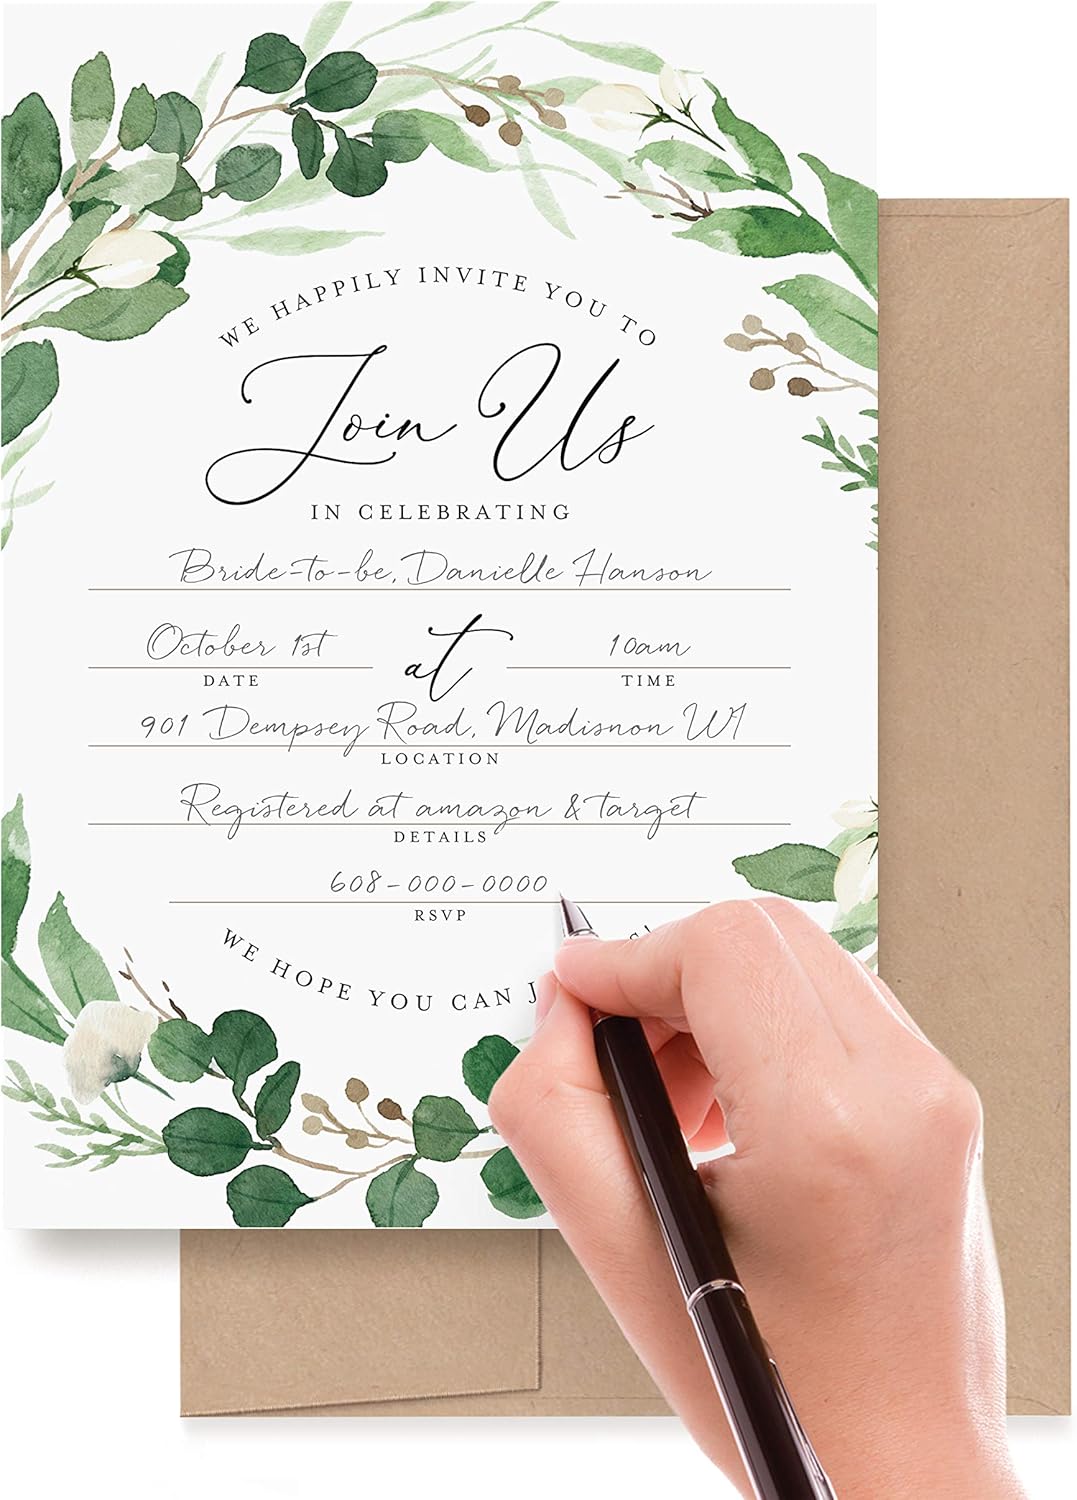 WE HAPPILY INVITE YOU TO
Join Us
IN CELEBRATING
Bride-to-be, Danielle Hanson
October 1st at 10am
DATE TIME
901 Dempsey Road, Madisnon WI
LOCATION
Registered at amazon & target
DETAILS
608-000-0000
RSVP
WE HOPE YOU CAN